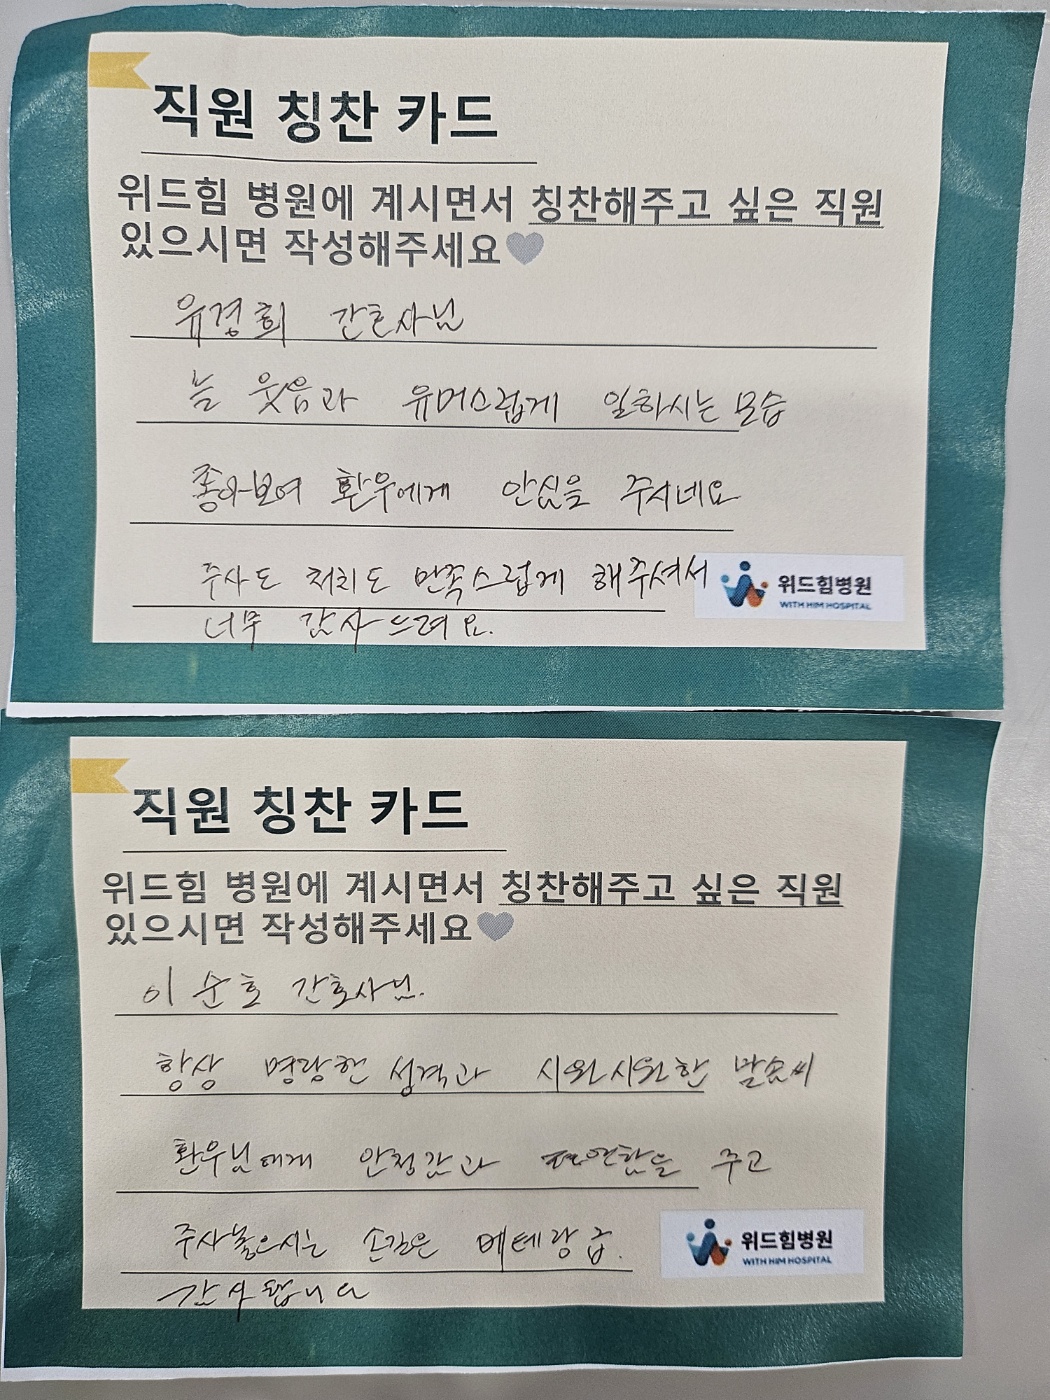 직원 칭찬 카드
위드힘 병원에 계시면서 칭찬해주고 싶은 직원
있으시면 작성해주세요🩶
유경희 간호사님
늘 웃음과 유머스럽게 일하시는 모습
좋아보여 환우에게 안심을 주시네요
주사도 처치도 만족스럽게 해주셔서
너무 감사드려요.
위드힘병원
WITH HIM HOSPITAL
직원 칭찬 카드
위드힘 병원에 계시면서 칭찬해주고 싶은 직원
있으시면 작성해주세요🩶
이순호 간호사님.
항상 명랑한 성격과 시원시원한 말솜씨
환우님에게 안정감과 편안함을 주고
주사놓으시는 손길은 베테랑급.
감사합니다
위드힘병원
WITH HIM HOSPITAL